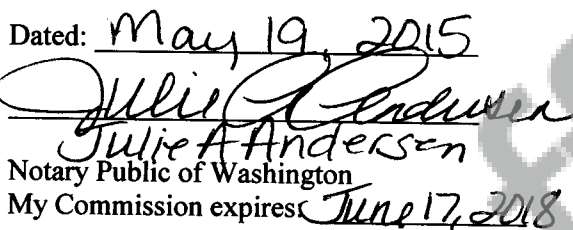 Dated: May 19, 2015
Julie A Andersen
Julie A Andersen
Notary Public of Washington
My Commission expires: June 17, 2018